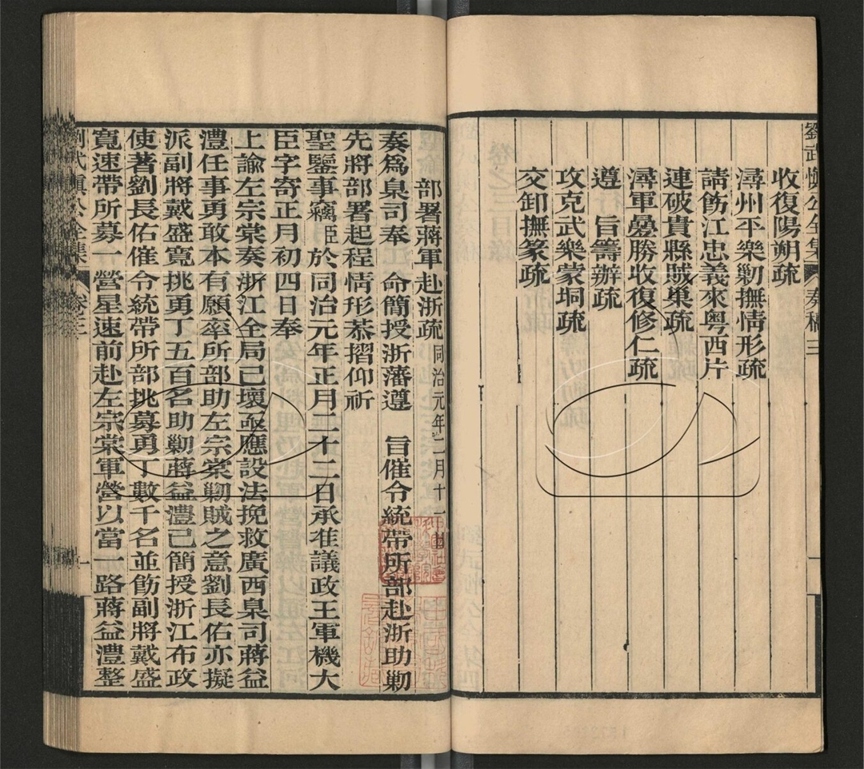 劉武慎公全集 奏稿三
收復陽朔疏
潯州平樂剿撫情形疏
請飭江忠義來粤西片
連破貴縣賊巢疏
潯軍疊勝收復修仁疏
遵　旨籌辦疏
攻克武樂蒙垌疏
交卸撫篆疏
部署蔣軍赴浙疏同治元年二月十一日
奏爲臬司奉　命簡授浙藩遵　旨催令統帶所部赴浙助剿
先將部署起程情形恭摺仰祈
聖鑒事竊臣於同治元年正月二十二日承准議政王軍機大
臣字寄正月初四日奉
上諭左宗棠奏浙江全局已壞亟應設法挽救廣西臬司蔣益
澧任事勇敢本有願率所部助左宗棠剿賊之意劉長佑亦擬
派副將戴盛寬挑勇丁五百名助剿蔣益澧已簡授浙江布政
使著劉長佑催令統帶所部挑募勇丁數千名並飭副將戴盛
寬速帶所募一營星速前赴左宗棠軍營以當一路蔣益澧整
劉武慎公全集 卷三 一